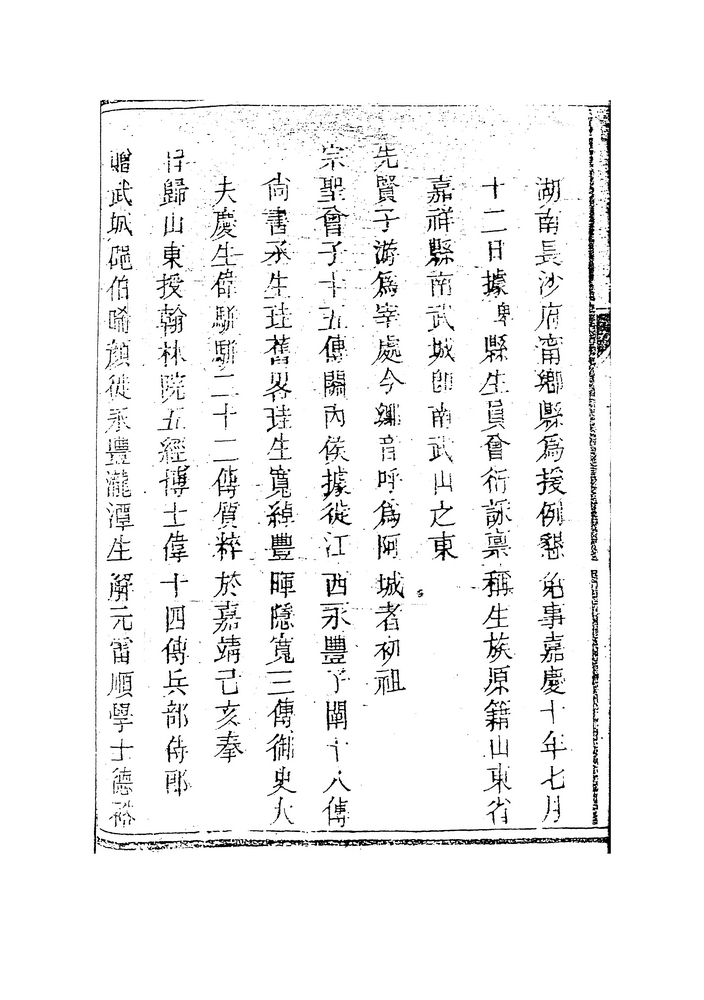 湖南長沙府甯鄉縣爲援例懇免事嘉慶十年七月
十二日據卑縣生員曾衍詠稟稱生族原籍山東省
嘉祥縣南武城卽南武山之東
先賢子游爲宰處今鄉音呼爲阿城者初祖
宗聖曾子十五傳關內侯據徙江西永豐子闡十八傳
尙書丞生珪舊畧珪生寬綽豐暉隱寬三傳御史大
夫慶生偉駢駢二十二傳質粹於嘉靖己亥奉
旨歸山東授翰林院五經博士偉十四傳兵部侍郎
贈武城伯晞顏徙永豐瀧潭生解元雷順學士德裕